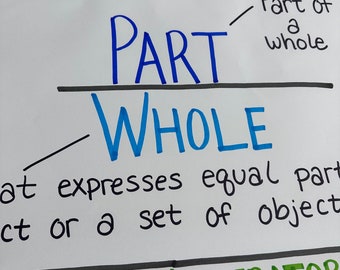 Part of
a
whole
PART
WHOLE
at expresses equal part
ct or a set of object